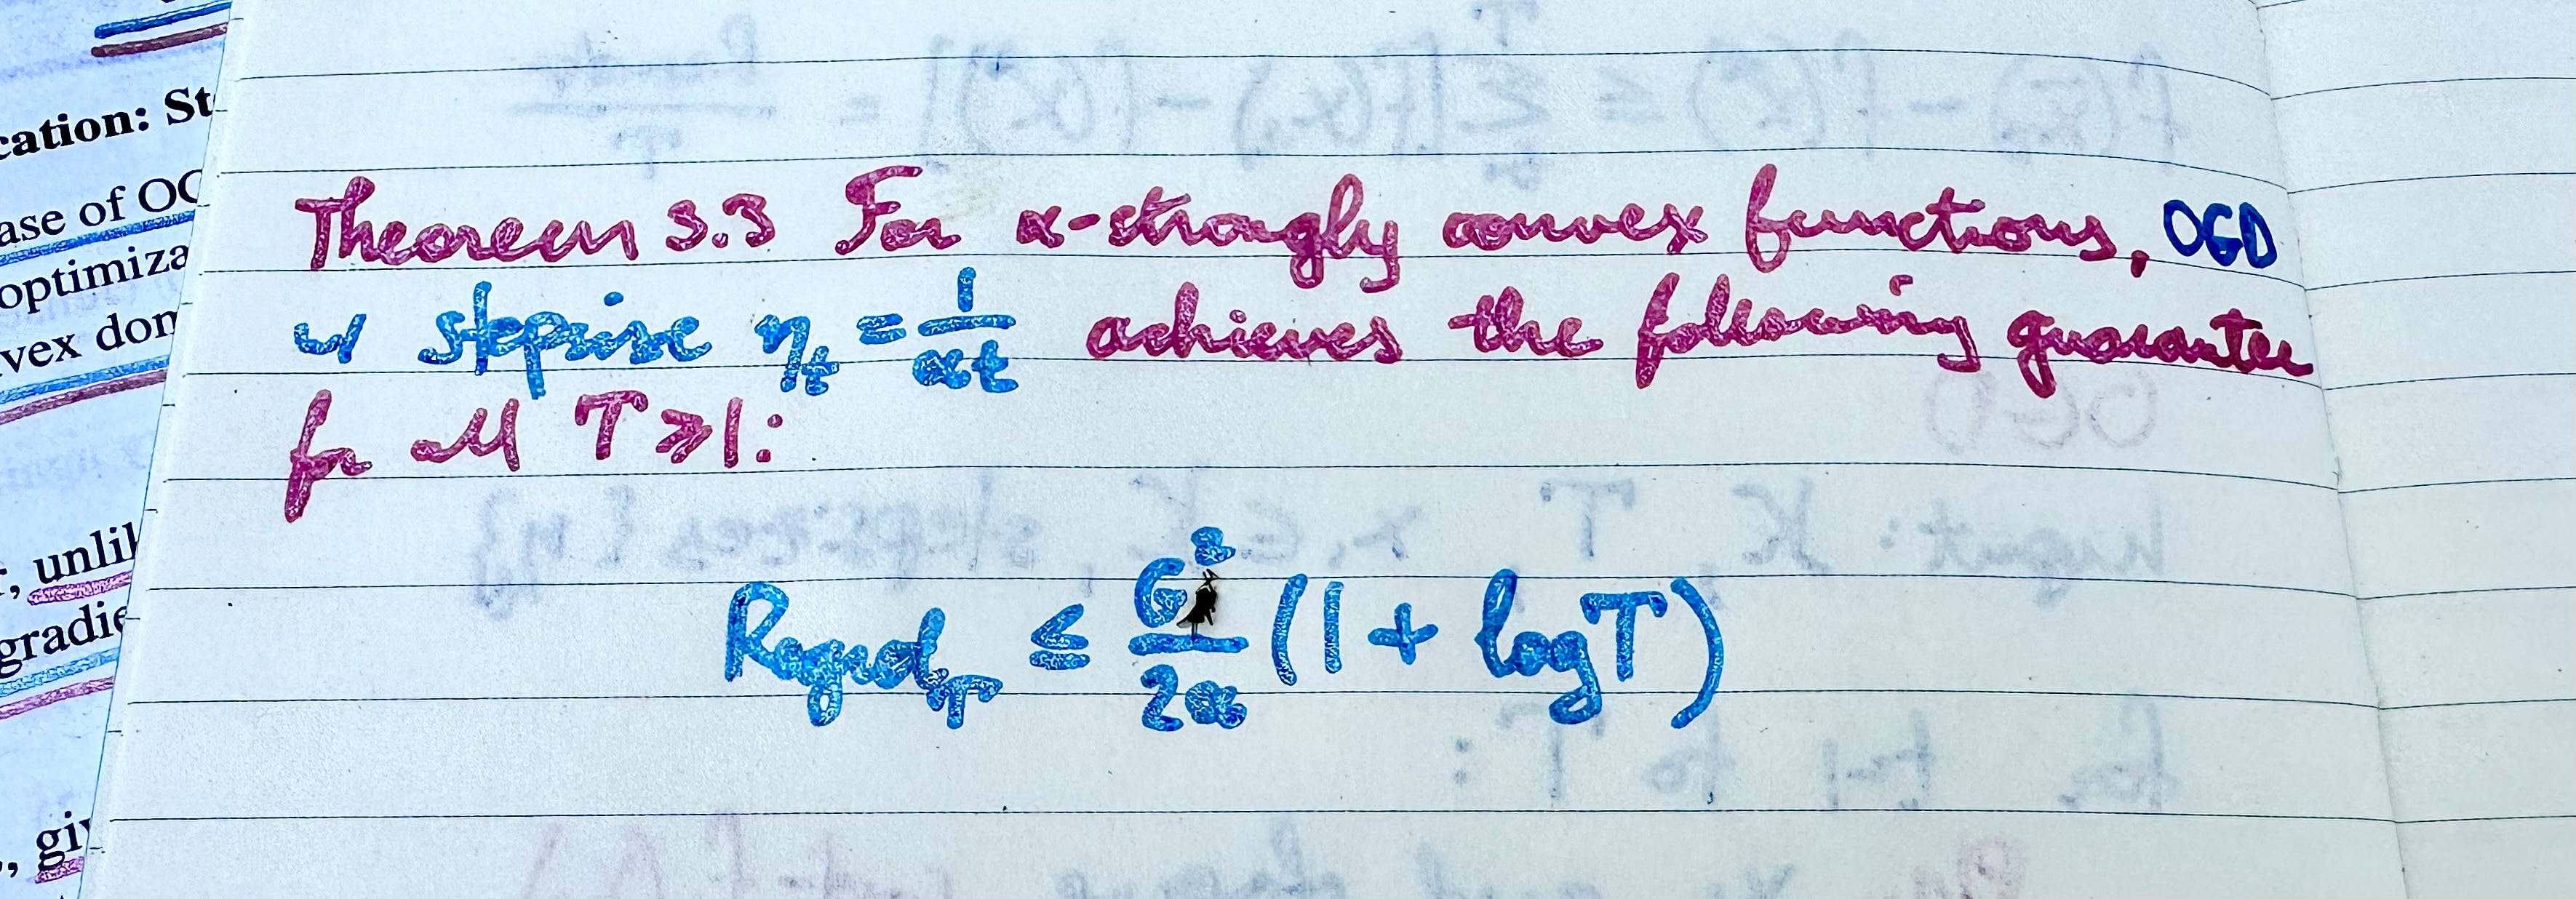 cation: St
ase of OC
optimiza
vex don
unlik
gradie
giv
Theorem 3.3 For α-strongly convex functions, OGD
w/ stepsize η_t = 1/(αt) achieves the following guarantee
for all T ≥ 1:
Regret_T ≤ G²/(2α) (1 + log T)